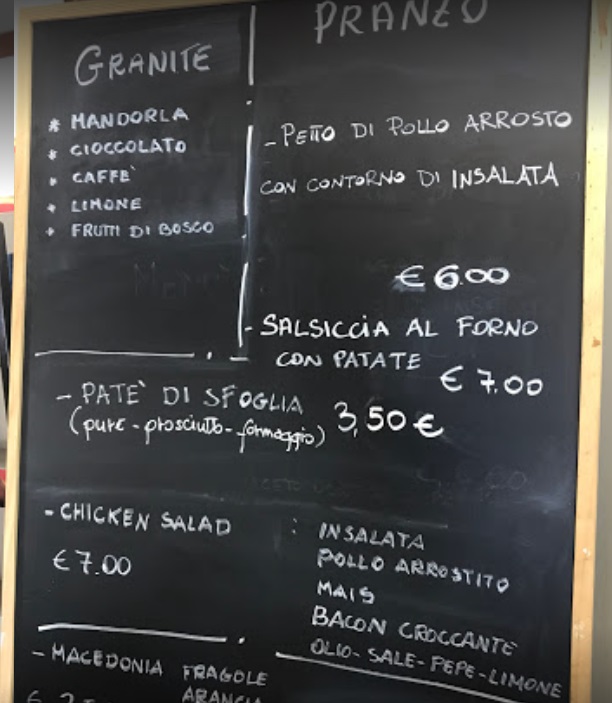 GRANITE
* MANDORLA
* CIOCCOLATO
* CAFFE`
* LIMONE
* FRUTTI DI BOSCO
PRANZO
- PETTO DI POLLO ARROSTO
CON CONTORNO DI INSALATA
€ 6.00
- SALSICCIA AL FORNO
CON PATATE
€ 7.00
- PATE` DI SFOGLIA 3,50 €
(pure - prosciutto - formaggio)
- CHICKEN SALAD :
€ 7.00
INSALATA
POLLO ARROSTITO
MAIS
BACON CROCCANTE
OLIO - SALE - PEPE - LIMONE
- MACEDONIA FRAGOLE
ARANCIA